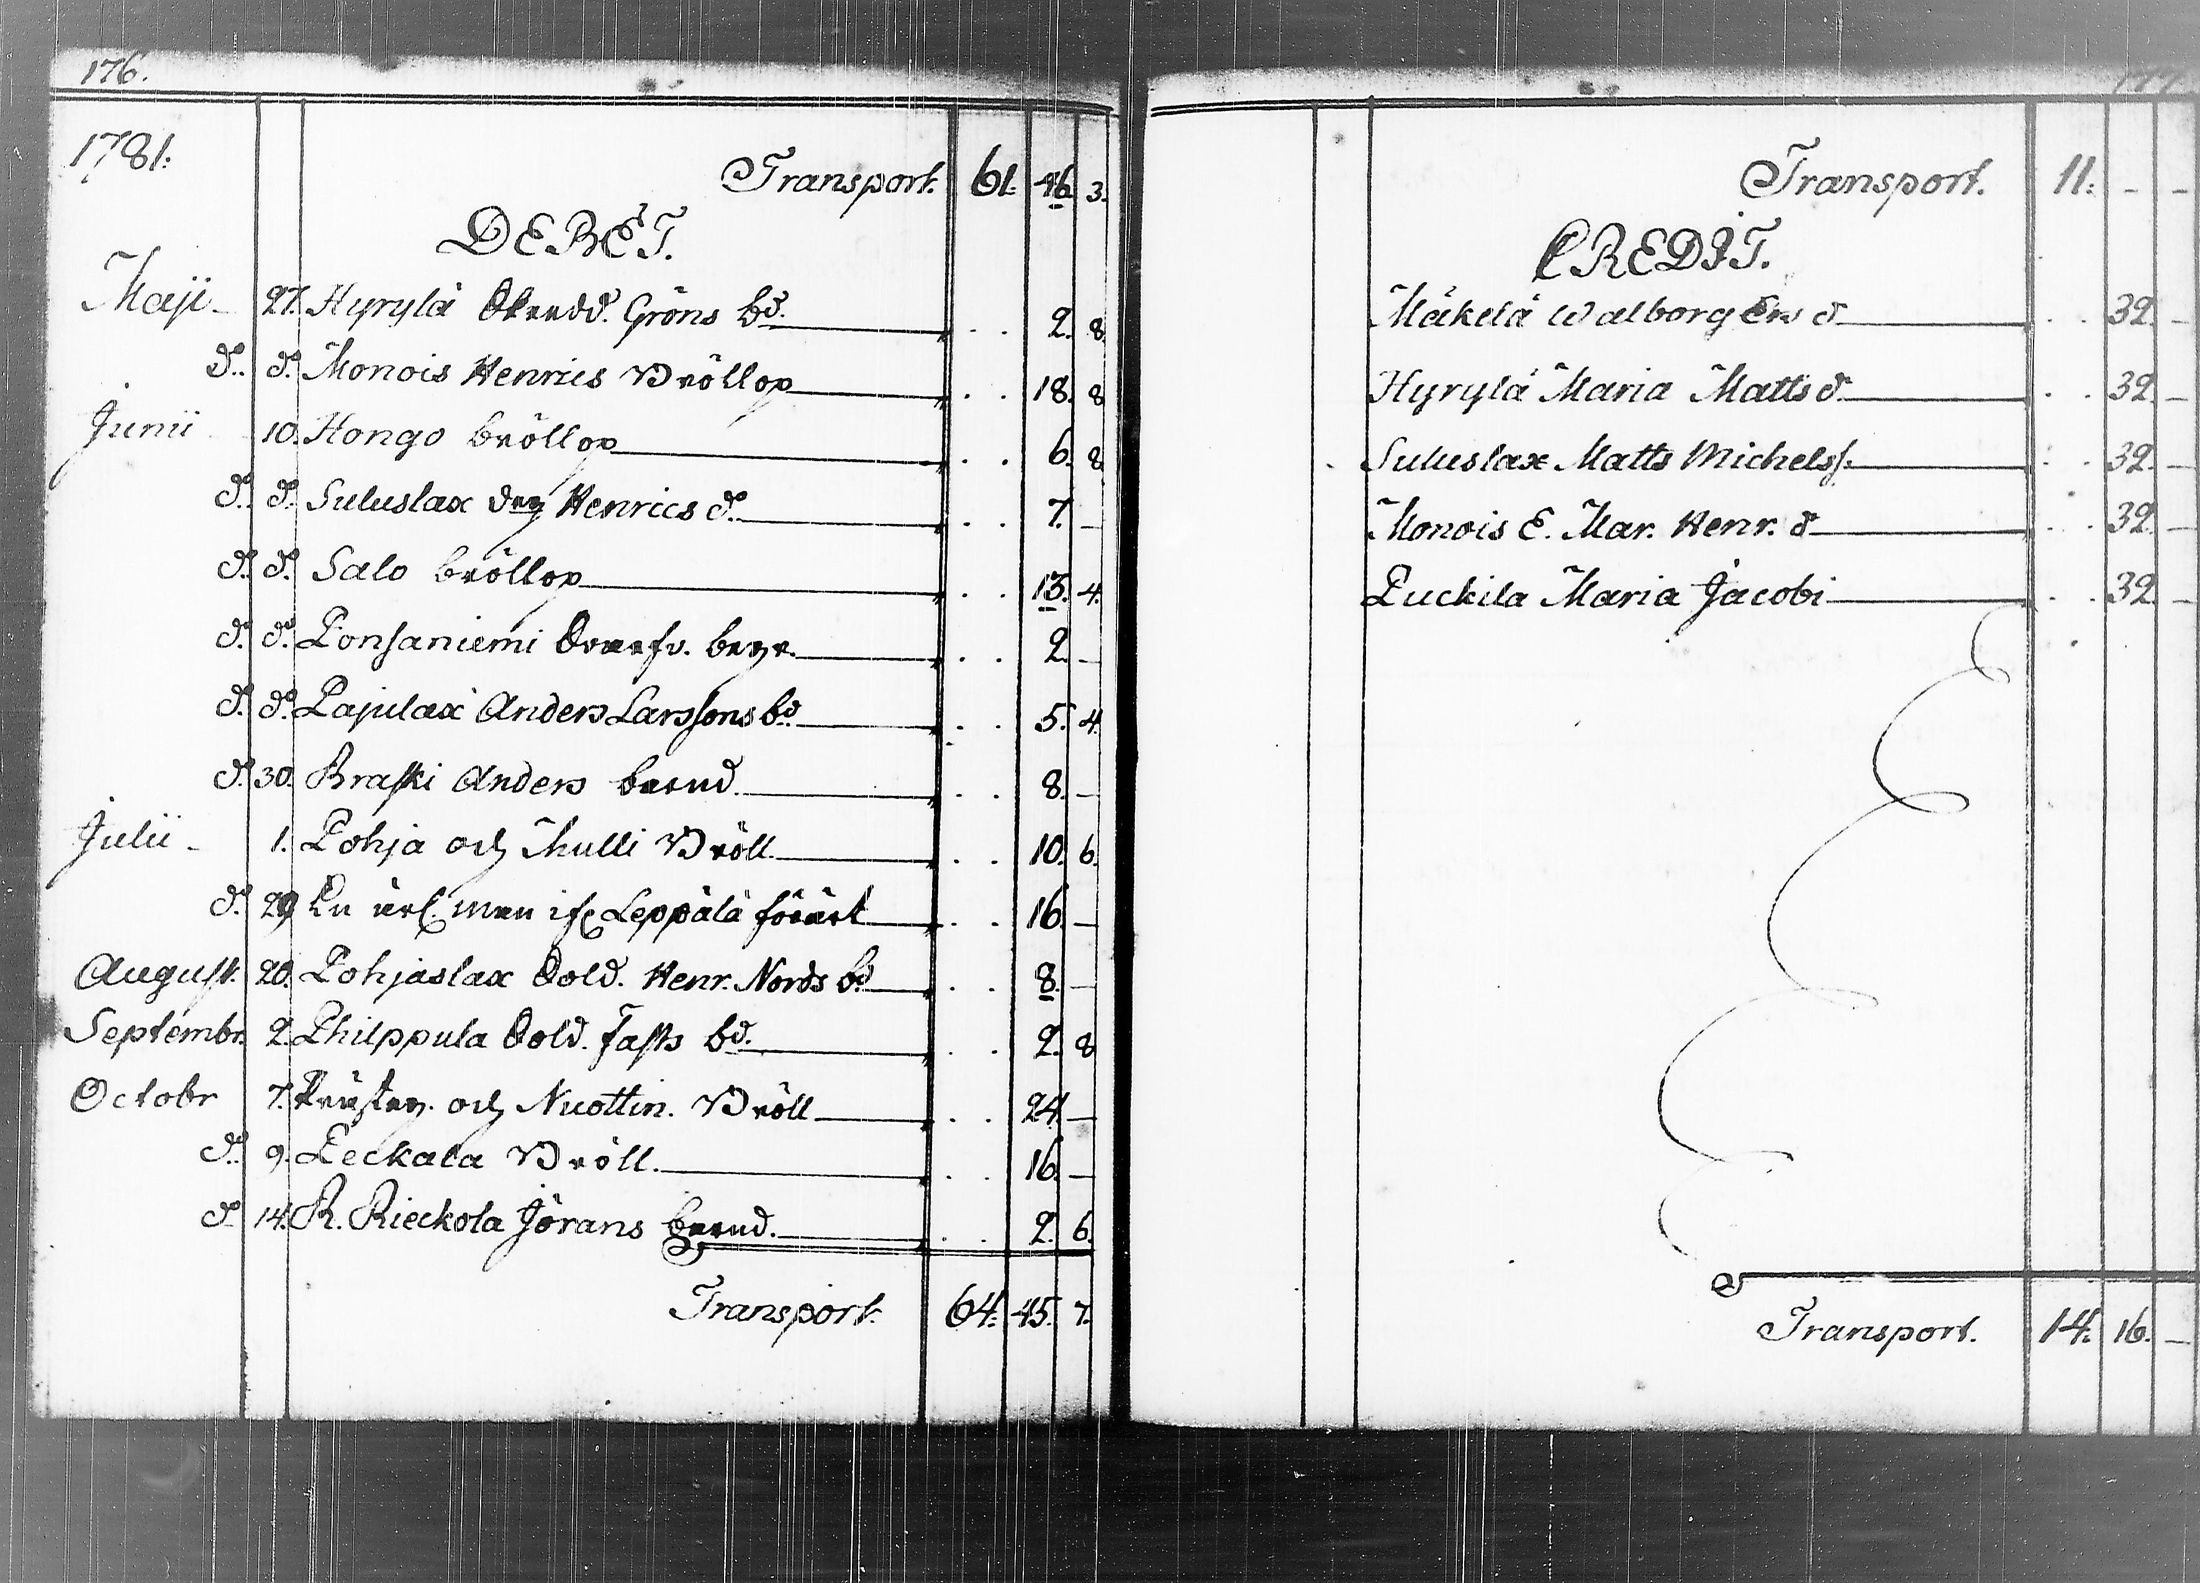 176.
1781.
Transport. 61. 46. 3.
DEBET.
Maji 27. Hyrylä Gröns bd. 2. 8.
do. do. Monois Henrics Bröllop 18. 8
Junii 10. Hongo bröllop 6. 8
do. do. Suluslax Henrics d. 7. —
do. do. Salo bröllop 13. 4.
do. do. Ponsaniemi begr. 2. —
do. do. Pajulax Anders Larssons bd. 5. 4.
do. 30. Braski Anders barnd. 8. —
Julii 1. Pohja och Mulli Bröll. 10. 6.
do. 29 En ärl. man ifr Leppälä förärt 16. —
August. 20. Pohjaslax Sold. Henr. Nords bd 8. —
Septembr. 2. Philppula Sold. Fasts bd. 2. 8
Octobr 7. och Nuottin. Bröll 24. —
do. 9. Peckala Bröll. 16. —
do. 14. R. Rieckola Jörans barnd. 2. 6.
Transport. 64. 45. 7.
177
Transport. 11. - -
CREDIT.
Mäkelä Walborg Ers d 32. —
Hyrylä Maria Matts d. 32. —
Suluslax Matts Michelss. 32. —
Monois E. Mar. Henr. d 32. —
Puckila Maria Jacobi 32 —
Transport. 14. 16. —